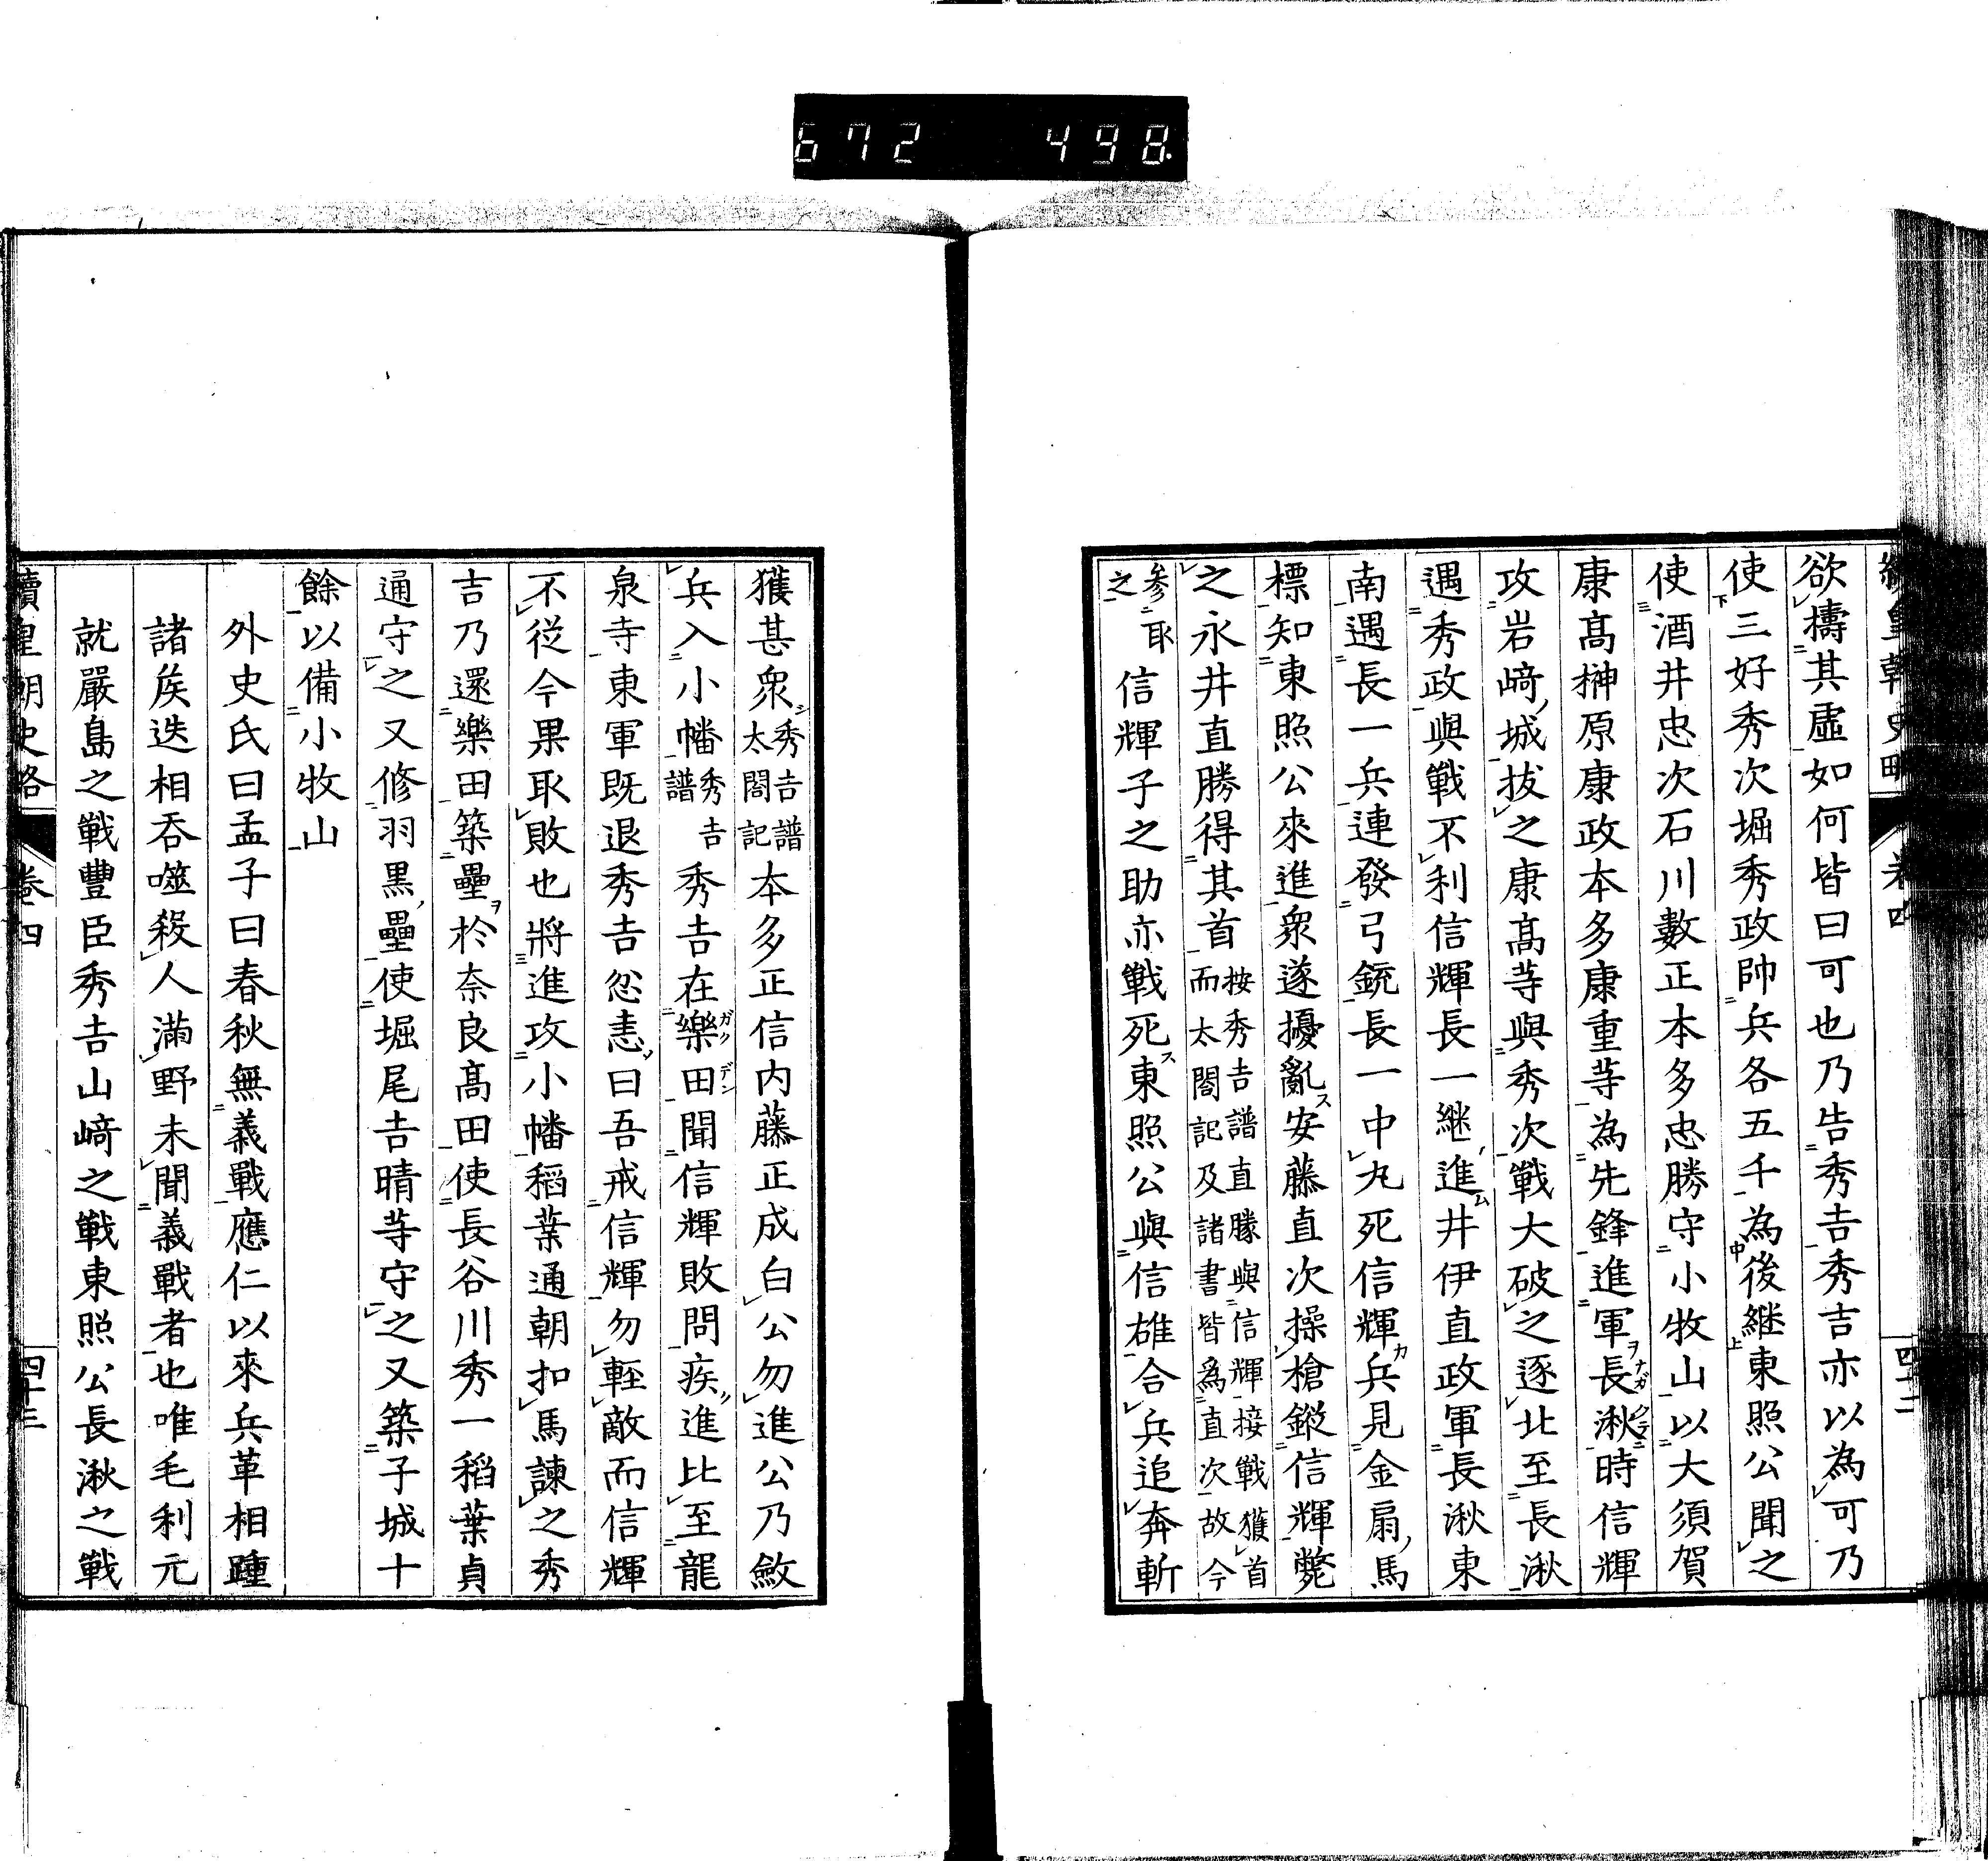 672 498
欲擣其虛如何皆曰可也乃告秀吉秀吉亦以為可乃
使三好秀次堀秀政帥兵各五千為後継東照公聞之
使酒井忠次石川數正本多忠勝守小牧山以大須賀
康髙榊原康政本多康重等為先鋒進軍長湫時信輝
攻岩﨑城拔之康髙等與秀次戰大破之逐北至長湫
遇秀政與戰不利信輝長一継進井伊直政軍長湫東
南遇長一兵連發弓銃長一中丸死信輝兵見金扇馬
標知東照公來進衆遂擾亂安藤直次操槍鏦信輝斃
之永井直勝得其首按秀吉譜直勝與信輝接戰獲首
而太閤記及諸書皆爲直次故今
参取
之
信輝子之助亦戰死東照公與信雄合兵追奔斬
獲甚衆秀吉譜
太閤記
本多正信内藤正成白公勿進公乃斂
兵入小幡秀吉
譜
秀吉在樂田聞信輝敗問疾進比至龍
泉寺東軍既退秀吉忿恚曰吾戒信輝勿輕敵而信輝
不從今果取敗也將進攻小幡稻葉通朝扣馬諫之秀
吉乃還樂田築壘於奈良髙田使長谷川秀一稻葉貞
通守之又修羽黒壘使堀尾吉晴等守之又築子城十
餘以備小牧山
外史氏曰孟子曰春秋無義戰應仁以來兵革相踵
諸矦迭相吞噬殺人滿野未聞義戰者也唯毛利元
就嚴島之戰豐臣秀吉山﨑之戰東照公長湫之戰
續皇朝史略 卷四 四十三